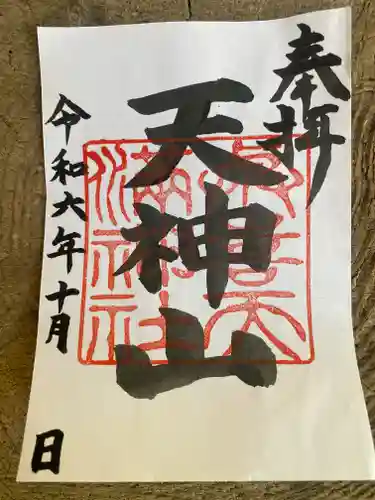 奉拝
天神山
令和六年十月
日